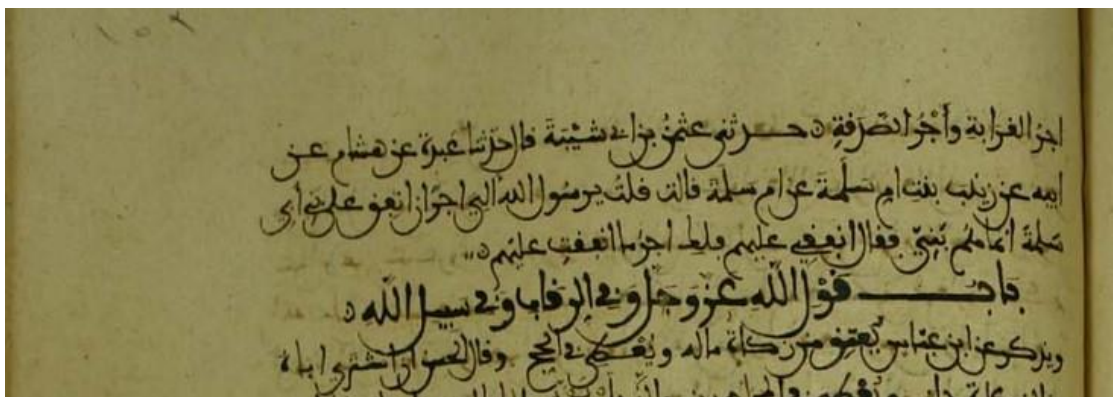 ١٥٢
اجر القرابة وأجر الصدقة حدثني عثمن بن أبي شيبة قال حدثنا عبدة عن هشام عن
ابيه عن زينب بنت ام سلمة عن ام سلمة قالت قلت يرسول الله الي اجر ان انفق على بني ابي
سلمة انما هم بني فقال انفقي عليهم فلك اجر ما انفقت عليهم
باب قول الله عز وجل وفي الرقاب وفي سبيل الله
ويذكر عن ابن عباس يعتق من زكاة ماله ويعطي في الحج وقال الحسن ان اشترى اباه